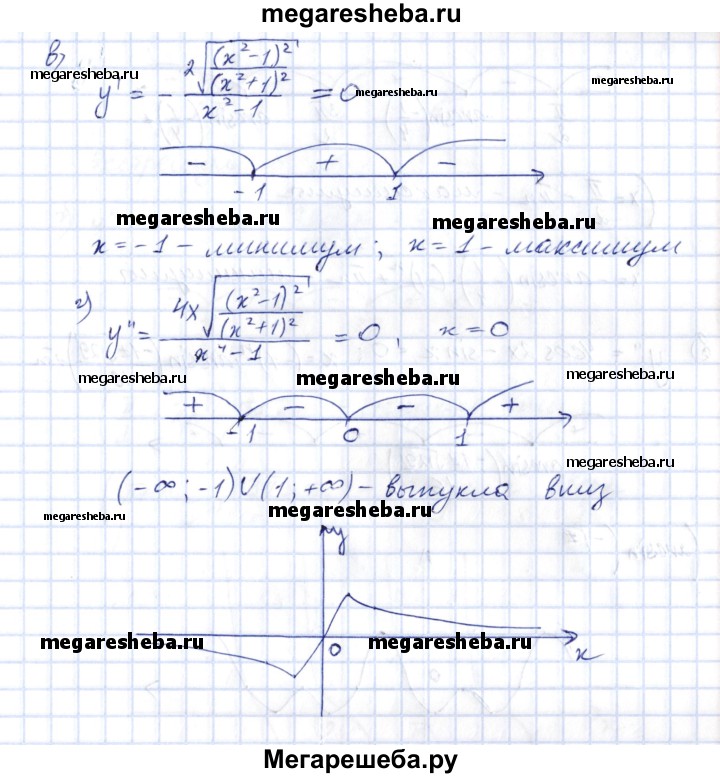 megaresheba.ru
в)
y' = - 2√((x²-1)²/(x²+1)²) / (x²-1) = 0
megaresheba.ru megaresheba.ru megaresheba.ru
- + -
-1 1
megaresheba.ru megaresheba.ru
x = -1 - минимум; x = 1 - максимум
г)
y'' = 4x√((x²-1)²/(x²+1)²) / (x⁴-1) = 0, x = 0
megaresheba.ru megaresheba.ru megaresheba.ru
+ - - +
-1 0 1
megaresheba.ru
(-∞; -1) ∪ (1; +∞) - выпукла вниз
megaresheba.ru megaresheba.ru
y
megaresheba.ru 0 megaresheba.ru x
Мегарешеба.ру